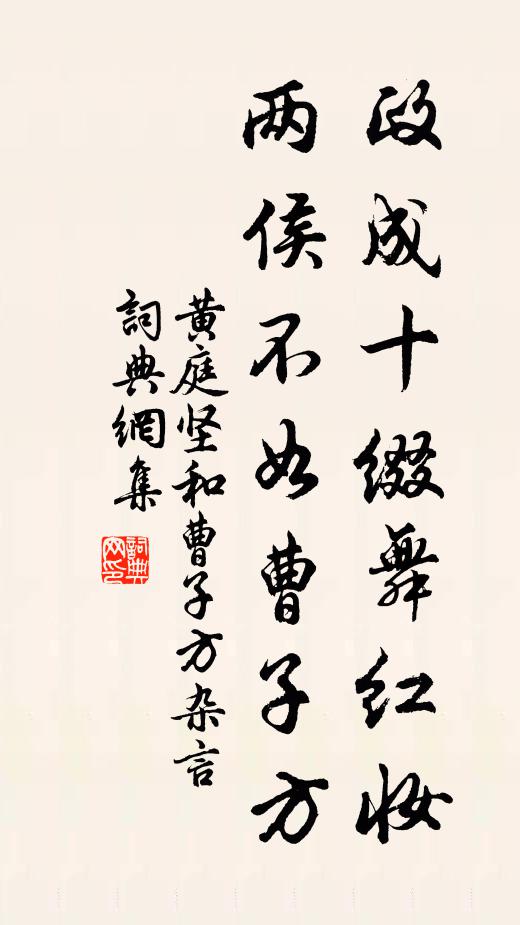 政成十缀舞红妆
两侯不如曹子方
黄庭坚和曹子方杂言
詞典網集
詞典
网印